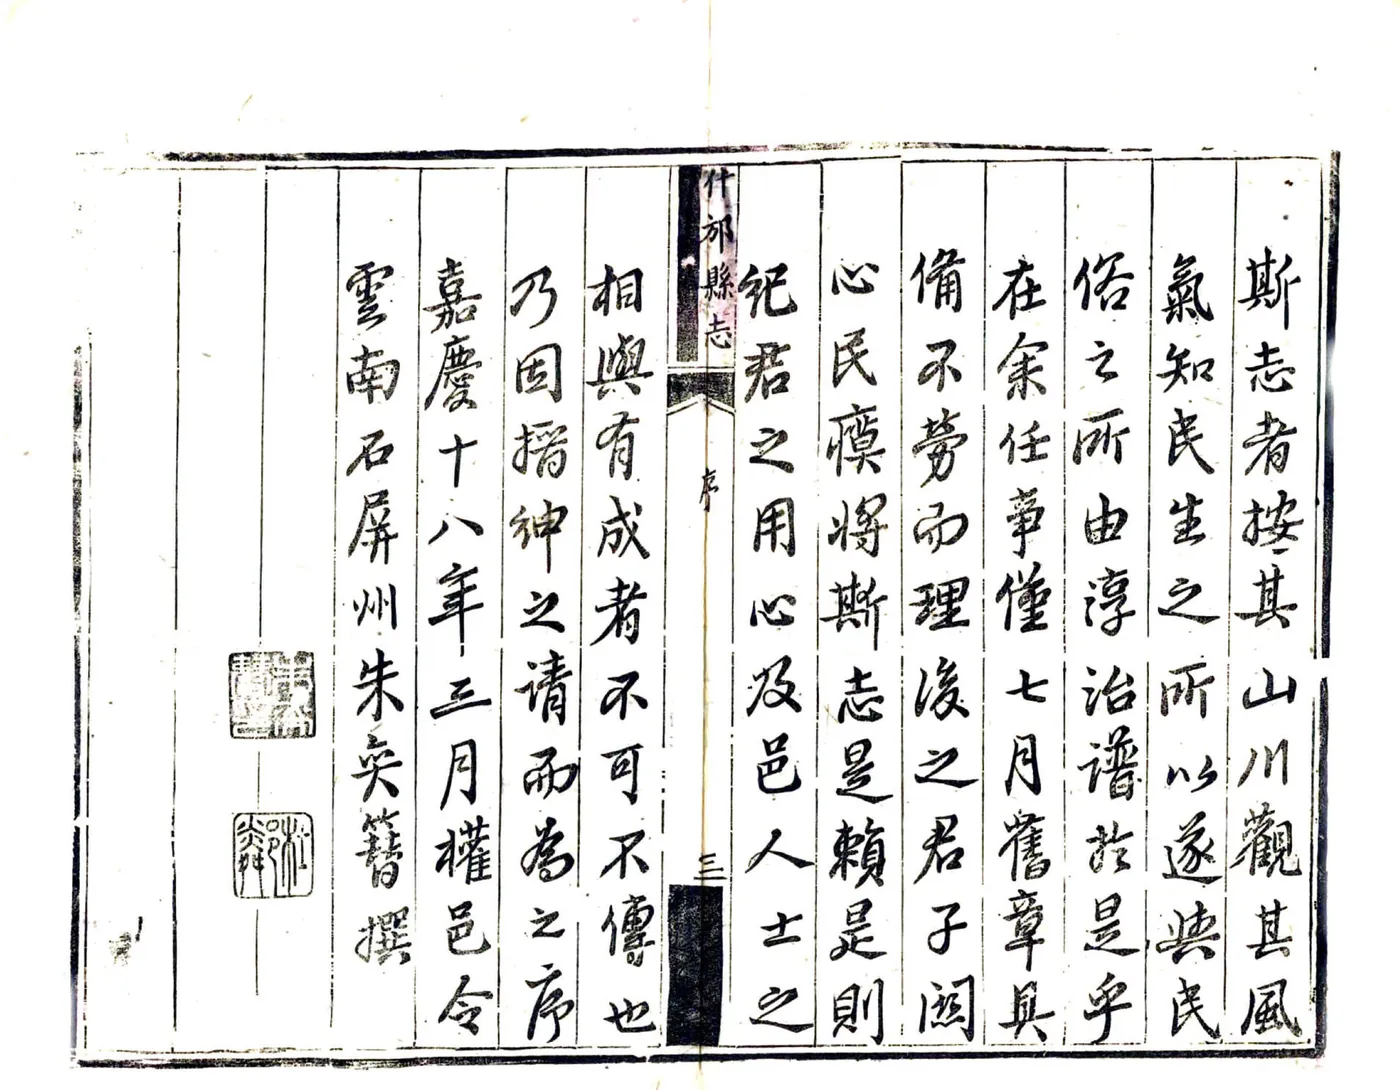 斯志者按其山川觀其風
氣知民生之所以遂與民
俗之所由淳治譜於是乎
在余任事僅七月舊章具
備不勞而理後之君子關
心民瘼將斯志是賴是則
紀君之用心及邑人士之
什邡縣志
序
三
相與有成者不可不傳也
乃因搢紳之請而為之序
嘉慶十八年三月權邑令
雲南石屏州朱奕簪撰